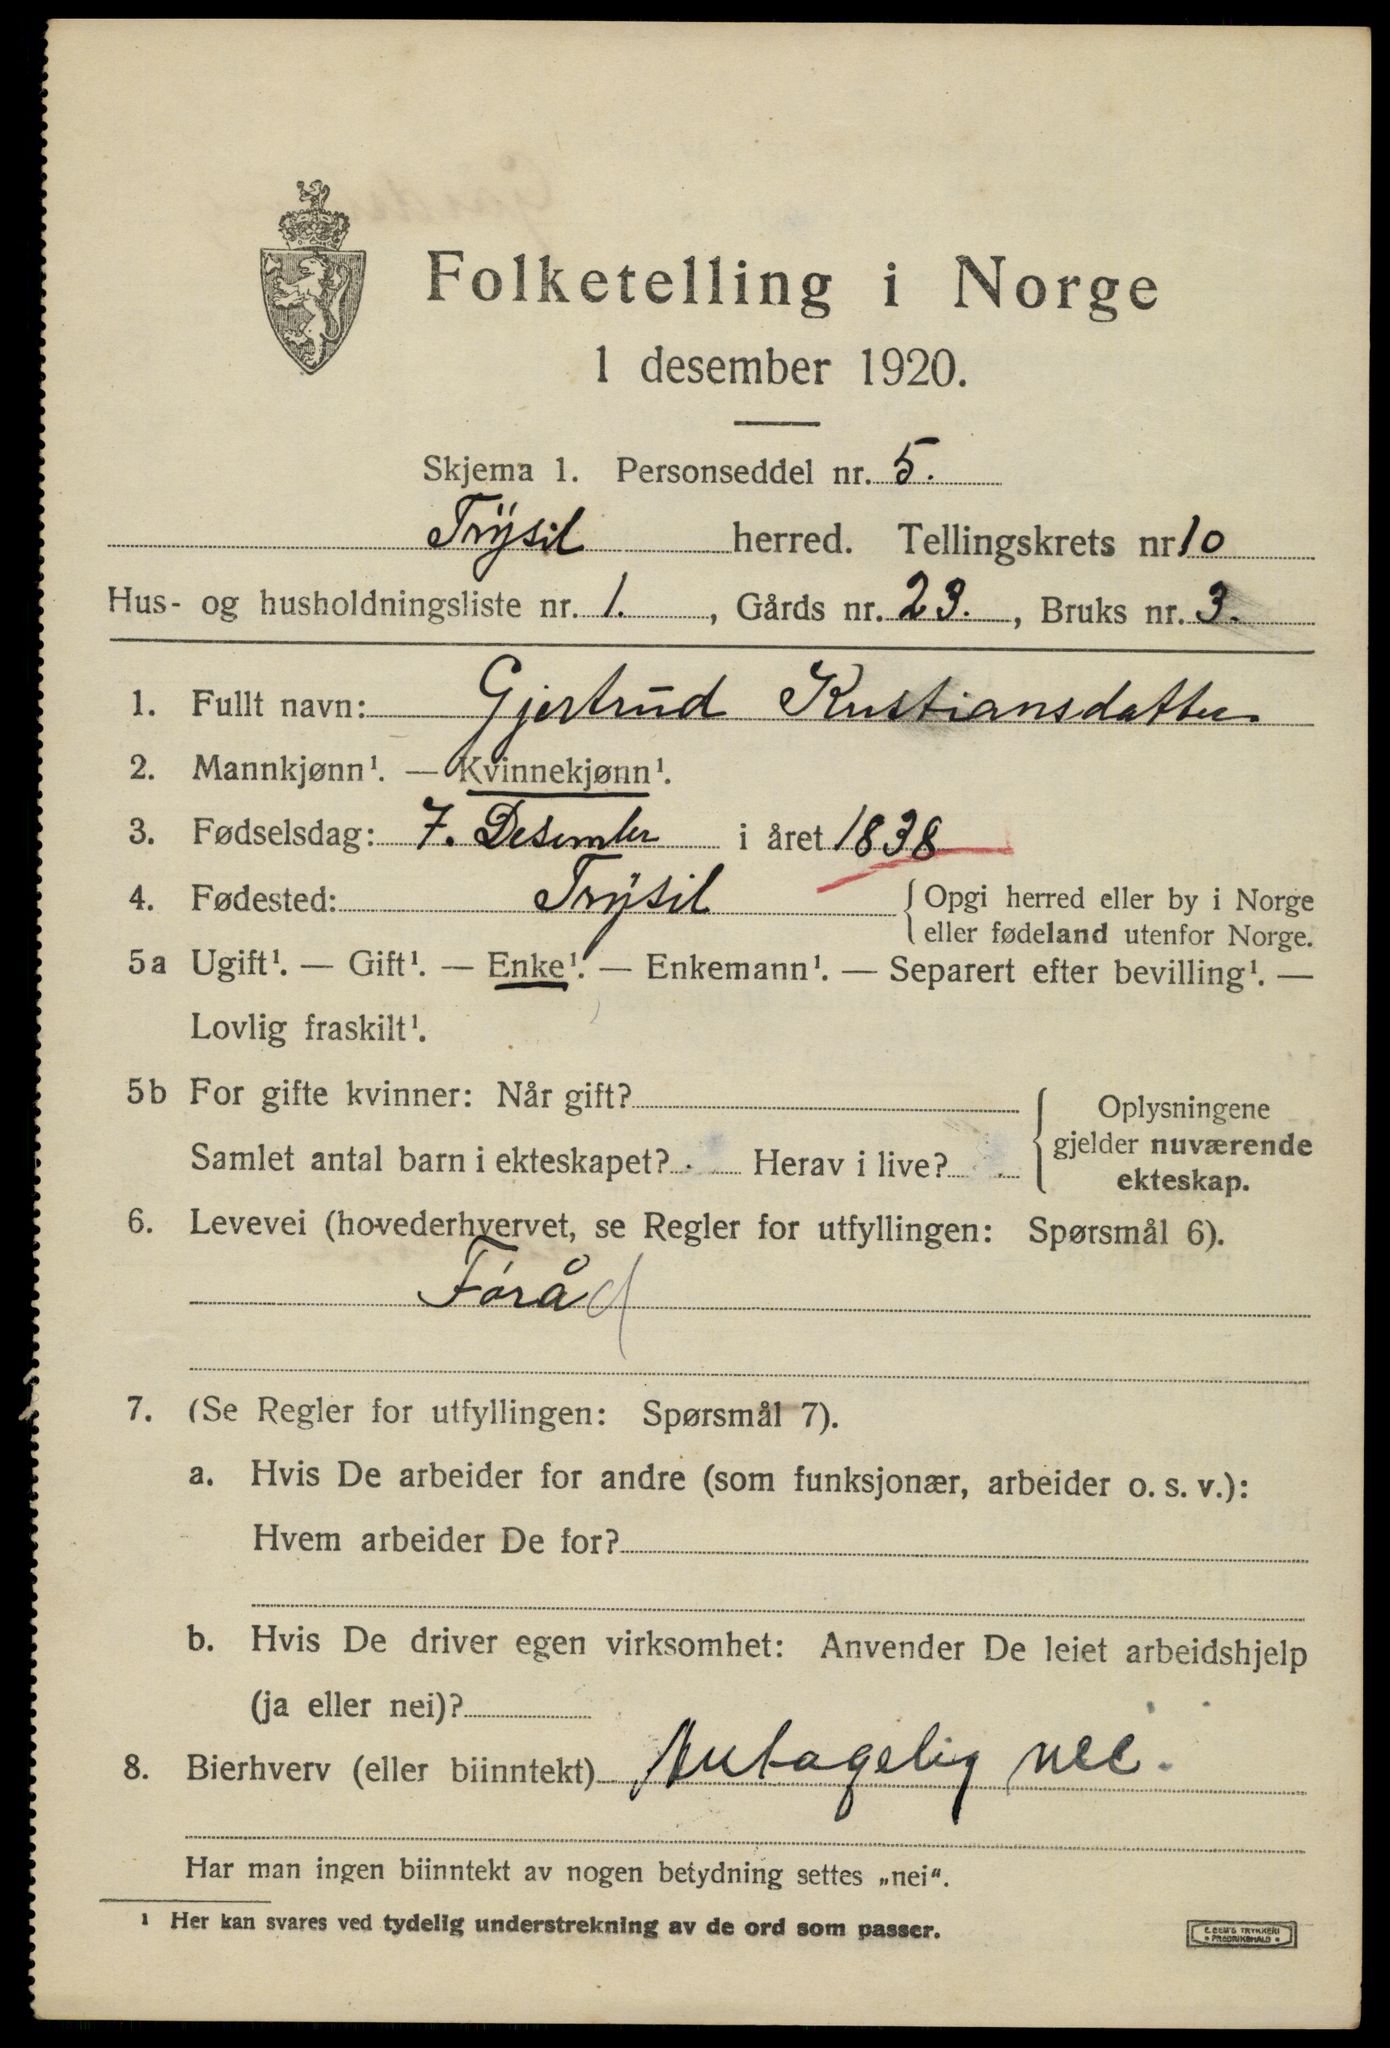 Folketelling i Norge
1 desember 1920.
Skjema 1. Personseddel nr. 5.
Trysil herred. Tellingskrets nr 10
Hus- og husholdningsliste nr. 1., Gårds nr. 23., Bruks nr. 3.
1. Fullt navn: Gjertrud Kristiansdatter
2. Mannkjønn¹. — Kvinnekjønn¹.
3. Fødselsdag: 7. Desember i året 1838
4. Fødested: Trysil { Opgi herred eller by i Norge
eller fødeland utenfor Norge.
5a Ugift¹. — Gift¹. — Enke¹. — Enkemann¹. — Separert efter bevilling¹. —
Lovlig fraskilt¹.
5b For gifte kvinner: Når gift?
Samlet antal barn i ekteskapet? Herav i live?
{ Oplysningene
gjelder nuværende
ekteskap.
6. Levevei (hovederhvervet, se Regler for utfyllingen: Spørsmål 6).
Føråd
7. (Se Regler for utfyllingen: Spørsmål 7).
a. Hvis De arbeider for andre (som funksjonær, arbeider o. s. v.):
Hvem arbeider De for?
b. Hvis De driver egen virksomhet: Anvender De leiet arbeidshjelp
(ja eller nei)?
8. Bierhverv (eller biinntekt) Antagelig nei.
Har man ingen biinntekt av nogen betydning settes „nei“.
¹ Her kan svares ved tydelig understrekning av de ord som passer.
E. SEM'S TRYKKERI
• FREDRIKSHALD •